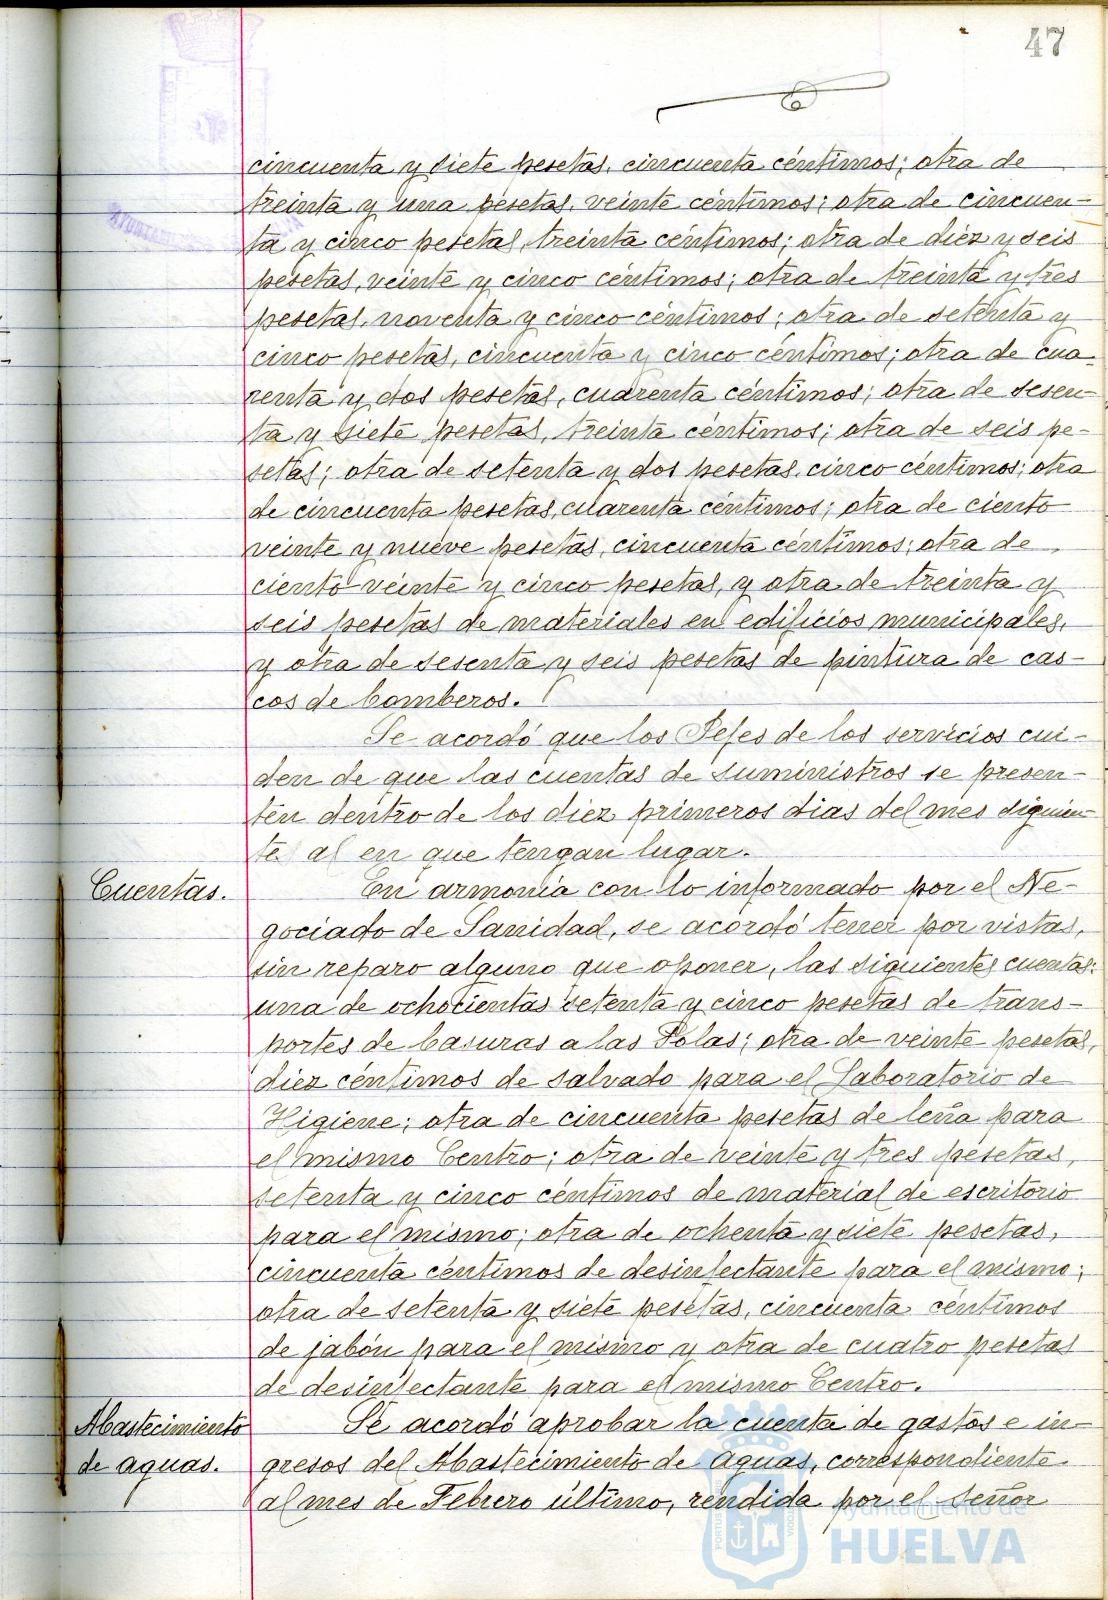 47
cincuenta y siete pesetas, cincuenta céntimos; otra de
treinta y una pesetas, veinte céntimos; otra de cincuen-
ta y cinco pesetas, treinta céntimos; otra de diez y seis
pesetas, veinte y cinco céntimos; otra de treinta y tres
pesetas, noventa y cinco céntimos; otra de setenta y
cinco pesetas, cincuenta y cinco céntimos; otra de cua-
renta y dos pesetas, cuarenta céntimos; otra de sesen-
ta y siete pesetas, treinta céntimos; otra de seis pe-
setas; otra de setenta y dos pesetas, cinco céntimos; otra
de cincuenta pesetas, cuarenta céntimos; otra de ciento
veinte y nueve pesetas, cincuenta céntimos; otra de
ciento veinte y cinco pesetas, y otra de treinta y
seis pesetas de materiales en edificios municipales,
y otra de sesenta y seis pesetas de pintura de cas-
cos de bomberos.
Se acordó que los Jefes de los servicios cui-
den de que las cuentas de suministros se presen-
ten dentro de los diez primeros dias del mes siguien-
te al en que tengan lugar.
Cuentas.
En armonía con lo informado por el Ne-
gociado de Sanidad, se acordó tener por vistas,
sin reparo alguno que oponer, las siguientes cuentas:
una de ochocientas setenta y cinco pesetas de trans-
portes de basuras a las Polas; otra de veinte pesetas,
diez céntimos de salvado para el Laboratorio de
Higiene; otra de cincuenta pesetas de leña para
el mismo Centro; otra de veinte y tres pesetas,
setenta y cinco céntimos de material de escritorio
para el mismo; otra de ochenta y siete pesetas,
cincuenta céntimos de desinfectante para el mismo;
otra de setenta y siete pesetas, cincuenta céntimos
de jabón para el mismo y otra de cuatro pesetas
de desinfectante para el mismo Centro.
Abastecimiento
de aguas.
Se acordó aprobar la cuenta de gastos e in-
gresos del Abastecimiento de Aguas, correspondiente
al mes de Febrero último, rendida por el señor
Ayuntamiento de
HUELVA